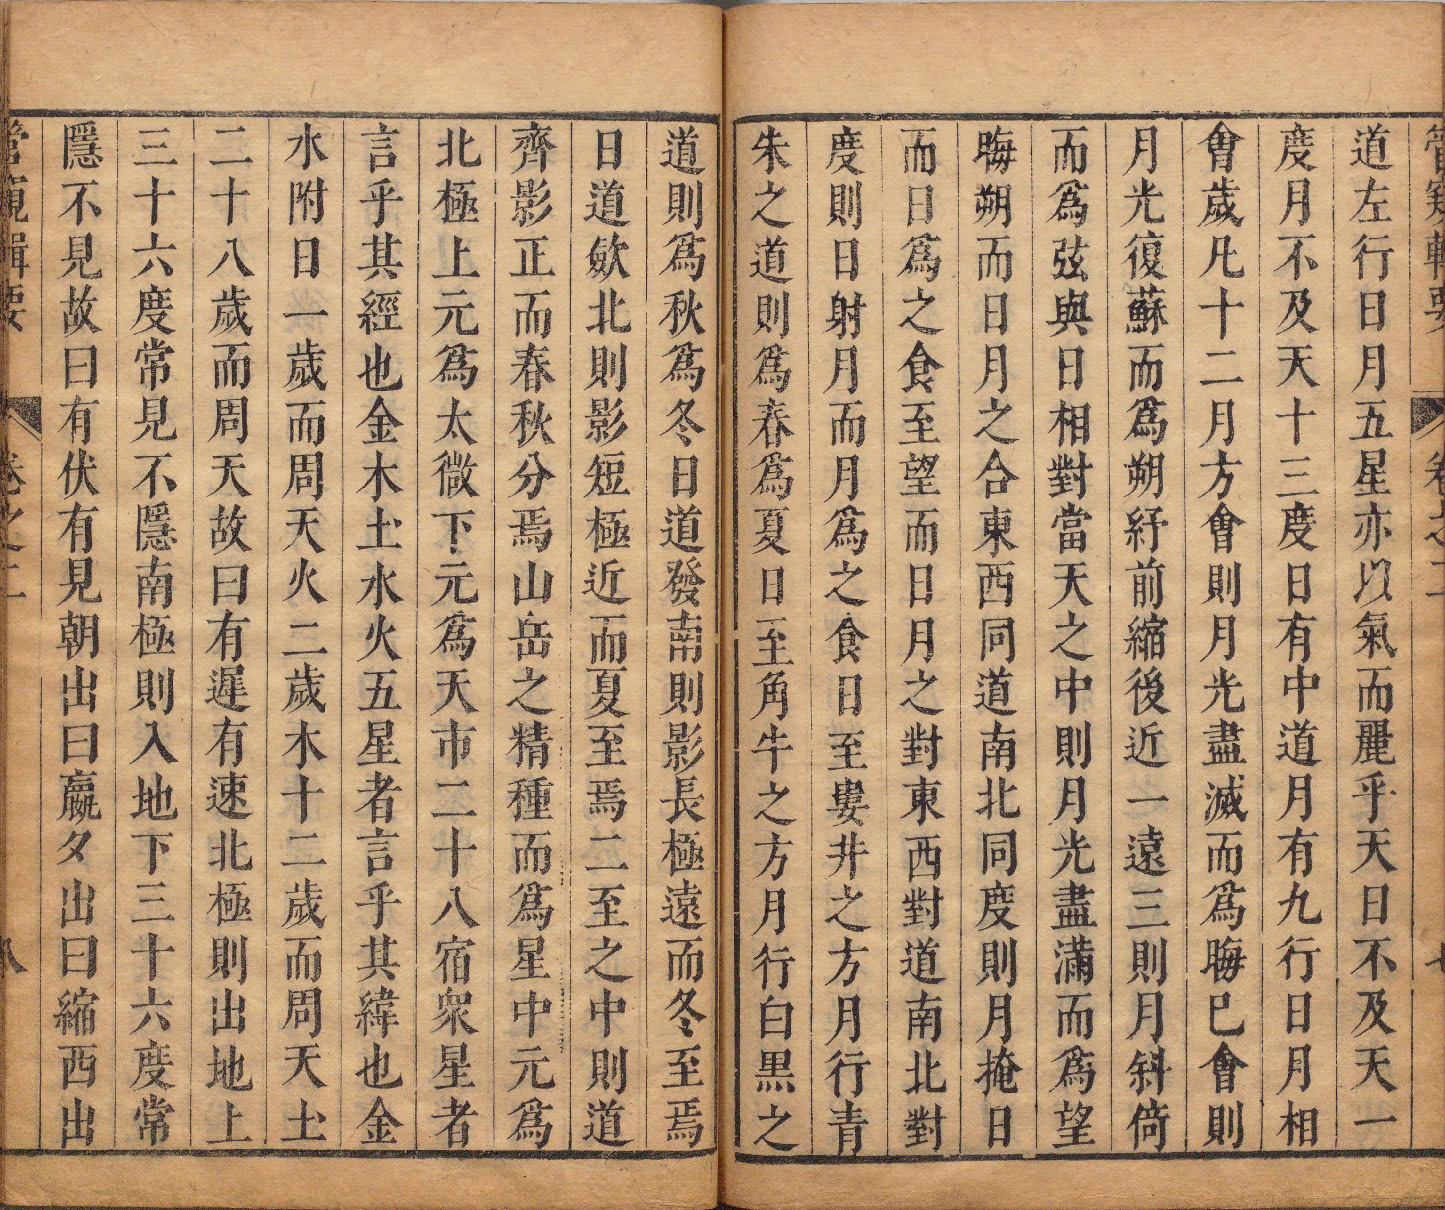 管窺輯要 卷之二 七
道左行日月五星亦以氣而麗乎天日不及天一
度月不及天十三度日有中道月有九行日月相
會歲凡十二月方會則月光盡滅而爲晦巳會則
月光復蘇而爲朔紓前縮後近一遠三則月斜倚
而爲弦與日相對當天之中則月光盡滿而爲望
晦朔而日月之合東西同道南北同度則月掩日
而日爲之食至望而日月之對東西對道南北對
度則日射月而月爲之食日至婁井之方月行青
朱之道則爲春爲夏日至角牛之方月行白黑之
道則爲秋爲冬日道發南則影長極遠而冬至焉
日道斂北則影短極近而夏至焉二至之中則道
齊影正而春秋分焉山岳之精種而爲星中元爲
北極上元爲太微下元爲天市二十八宿衆星者
言乎其經也金木土水火五星者言乎其緯也金
水附日一歲而周天火二歲木十二歲而周天土
二十八歲而周天故曰有遲有速北極則出地上
三十六度常見不隱南極則入地下三十六度常
隱不見故曰有伏有見朝出曰嬴夕出曰縮西出
管窺輯要 卷之二 八